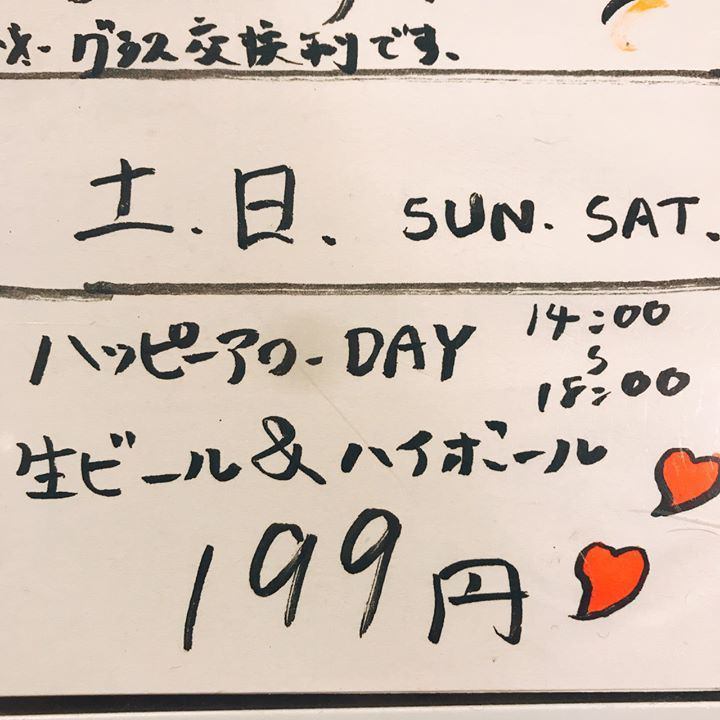 グラス交換制です.
土.日. SUN. SAT.
ハッピーアワーDAY 14:00
〜
18:00
生ビール&ハイボール
199円